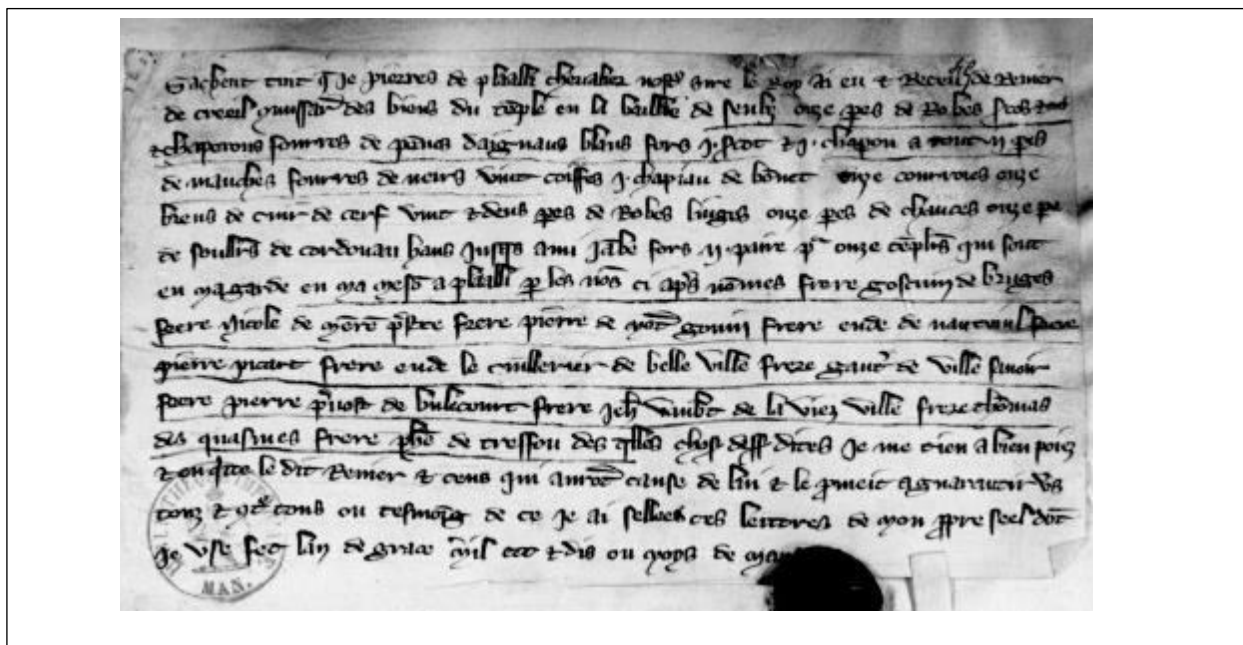 Sachent tuit q je pierres de plailli chevalier nostr sire le Roy ai eu et Receu de Renier
de creeil gmissare des biens du teple en la baillie de senliz onze pes de Robes scos
et chaperons fourres de pennes daignaus blans fors .j. scot et .j. chapon a tout ij pes
de manches fourres de neirs vint coiffes .j. chapiau de bonet onze courroies onze
liens de cuir de cerf vint et deus pes de Robes linges onze pes de chauces onze pe
de soullrs de cordouan haus jusqs a mi jabe fors ij. paire pr onze teplrs qui sont
en ma garde en ma meson a plailli pr les nos ci aprs nomes frere goscuin de bruges
frere Nicole de mere prstre frere pierre de mot gouin frere eude de nantuel frere
pierre picart frere eude le cuillerier de belle ville frere gautr de ville
frere pierre prvost de bulecourt frere jeh de la viez ville frere thomas
des quasnes frere phe de tressou des qlles choses dess dites je me tien a bien poiez
et en qitte le dit Renier et ceus qui airot cause de lui et le pmeit a garantir vrs
touz et gtre tous ou tesmoig de ce je ai sellees ces lettres de mon ppre seel dot
je use fet lan de grace mil ccc et dis ou moys de
MAN.